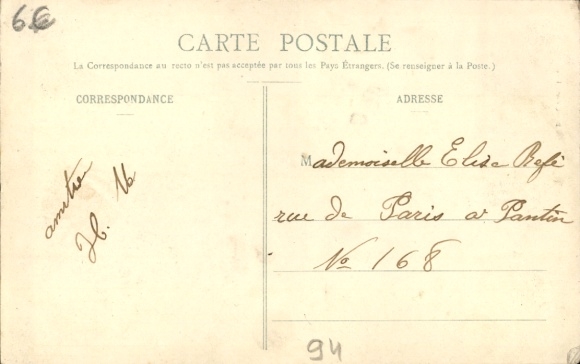 6€
CARTE POSTALE
La Correspondance au recto n'est pas acceptée par tous les Pays Étrangers. (Se renseigner à la Poste.)
CORRESPONDANCE
ADRESSE
Mademoiselle Elise Refé
rue de Paris a Pantin
No 168
94